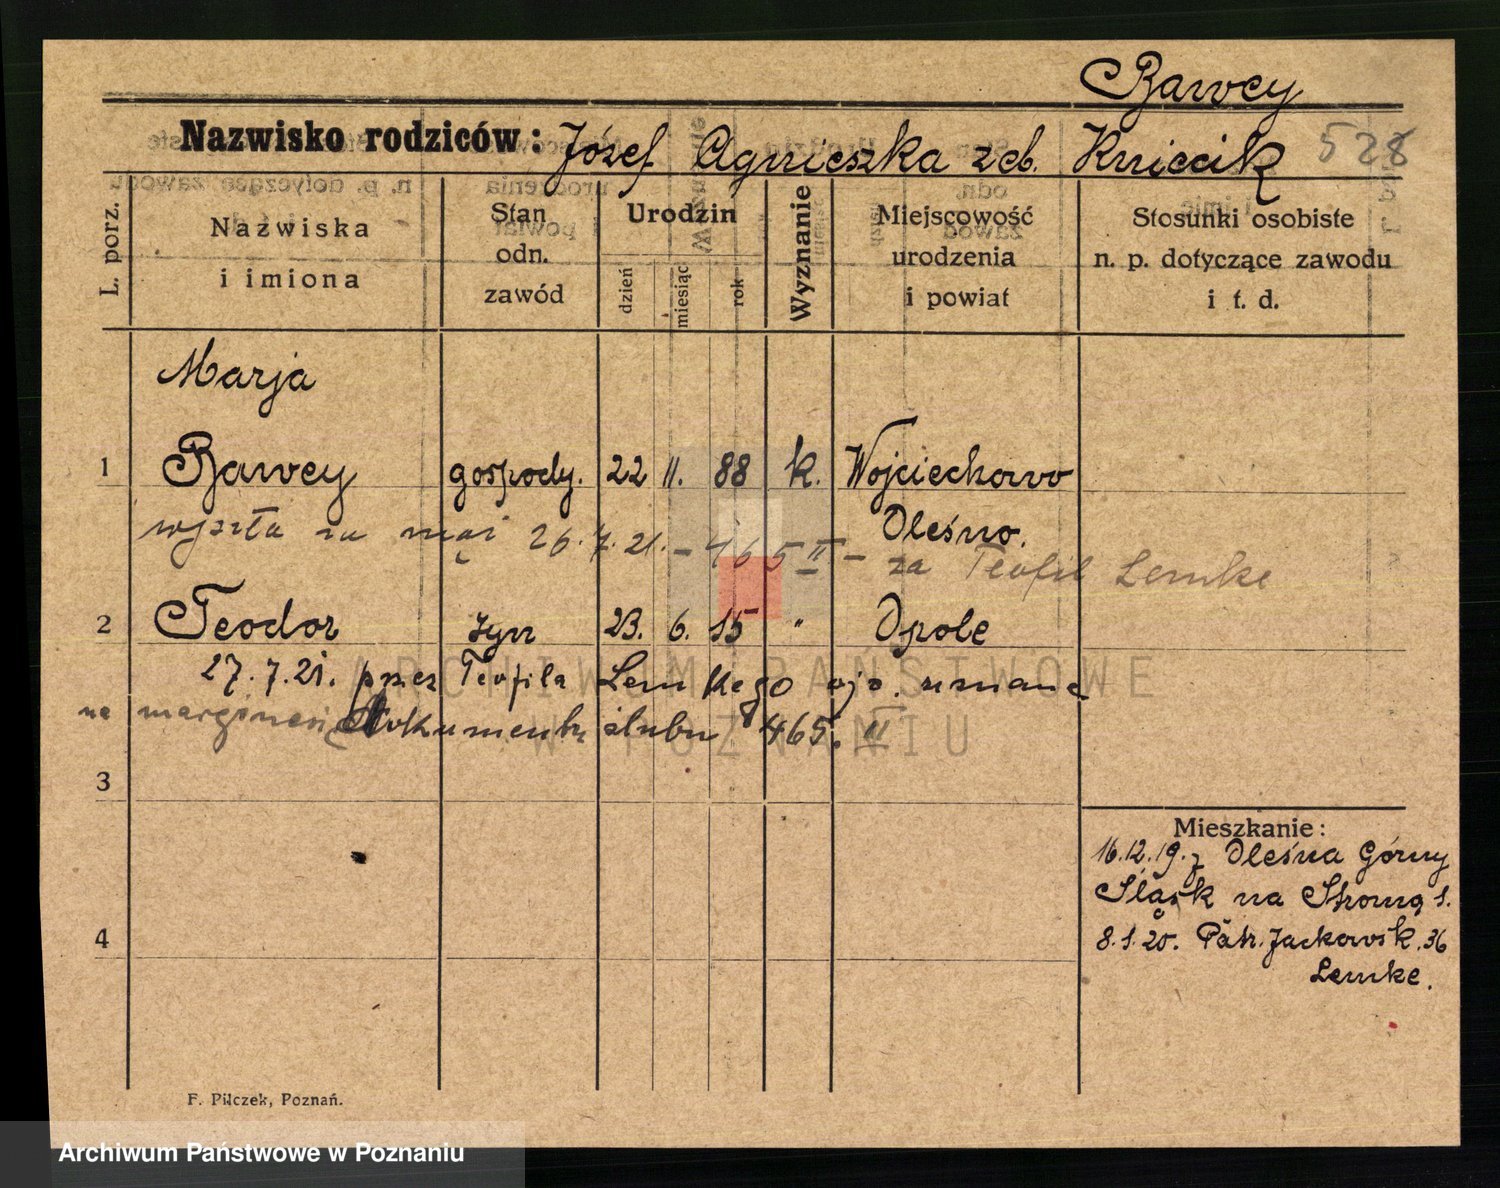 Bawey
Nazwisko rodziców: Józef Agnieszka z d. Kniecik 528
L. porz.
Nazwiska i imiona
Stan odn. zawód
Urodzin
dzień
miesiąc
rok
Wyznanie
Miejscowość urodzenia i powiat
Stosunki osobiste n. p. dotyczące zawodu i t. d.
Marja
1 Bawey gospody. 22 11. 88 k. Wojciechowo
Oleśno.
wyszła za mąż 26.7.21. – 465 II – za Teofil Lemke
2 Teodor syn 23. 6. 15 " Opole
27.7.21. przez Teofila Lemkego ojc. uznane
na marginesie dokumentu ślubu 465. II
3
Mieszkanie:
16.12.19. z Oleśna Górny
Śląsk na Stromą 1.
4
8.1.20. Patr. Jackowsk. 36
Lemke.
F. Pilczek, Poznań.
ARCHIWUM PAŃSTWOWE
W POZNANIU
Archiwum Państwowe w Poznaniu